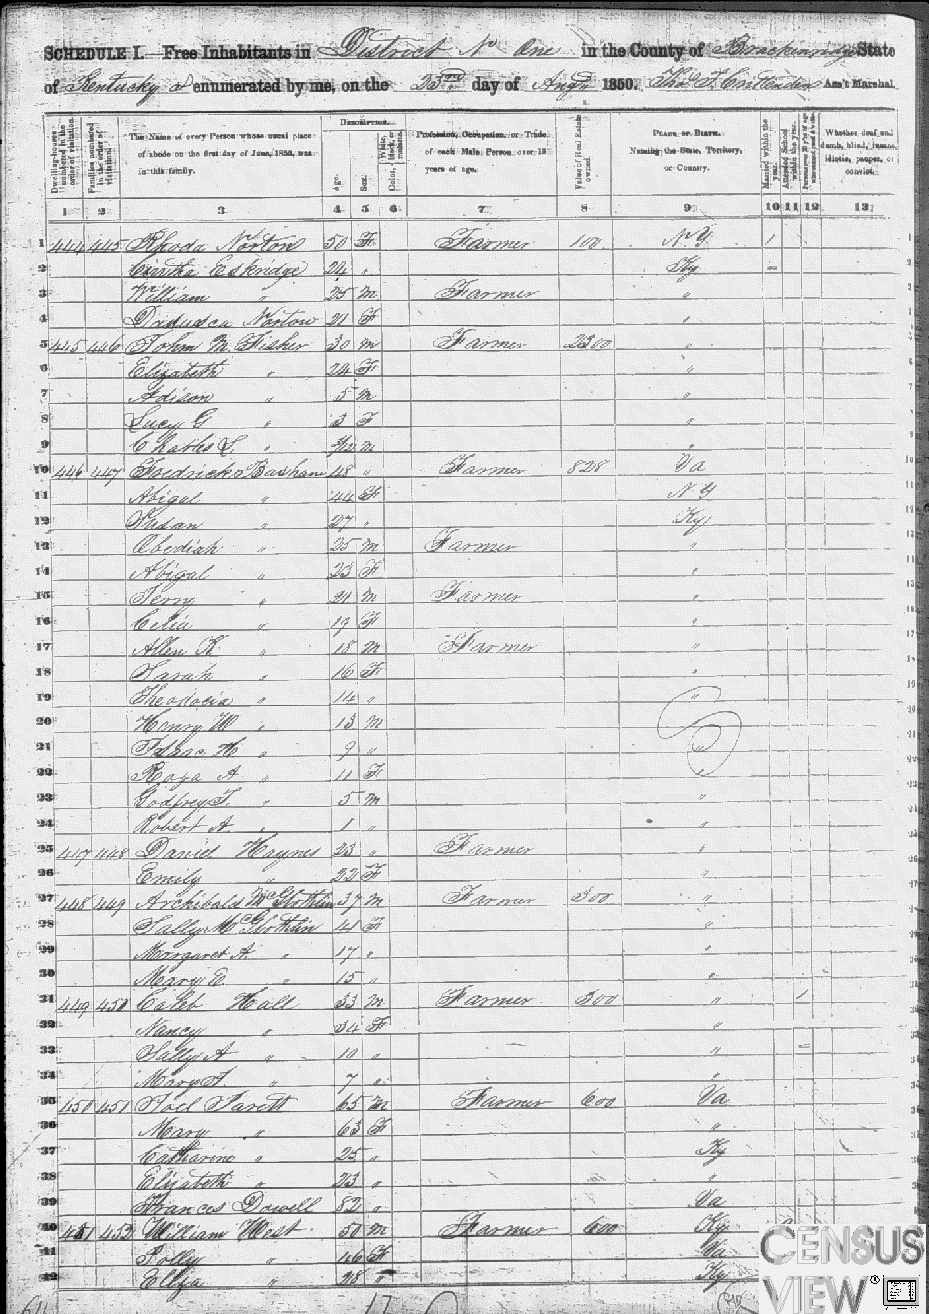 SCHEDULE I.—Free Inhabitants in District No One in the County of Brackenridge State
of Kentucky enumerated by me, on the 23rd day of Aug 1850. Thos T. Crittenden Ass't Marshal.
Dwelling-houses numbered in the order of visitation.
Families numbered in the order of visitation.
The Name of every Person whose usual place of abode on the first day of June, 1850, was in this family.
DESCRIPTION.
Age.
Sex.
Color, White, black, or mulatto.
Profession, Occupation, or Trade of each Male Person over 15 years of age.
Value of Real Estate owned.
PLACE OF BIRTH. Naming the State, Territory, or Country.
Married within the year.
Attended School within the year.
Whether deaf and dumb, blind, insane, idiotic, pauper, or convict.
1 2 3 4 5 6 7 8 9 10 11 12 13
1 444 445 Rhoda Norton 50 F Farmer 100 N.Y 1
2 Eskridge 24 " Ky =
3 William " 25 m Farmer "
4 Norton 21 F "
5 445 446 John M Fisher 30 m Farmer 2300 "
6 Elizabeth " 24 F "
7 Adison " 5 m "
8 Lucy G " 3 F "
9 Charles L. " m "
10 446 447 Fredrick Basham 48 " Farmer 828 Va
11 Abigal " 44 F N.Y
12 Susan " 27 " Ky
13 Obediah " 25 m Farmer "
14 Abigal " 23 F "
15 " 21 m Farmer "
16 Celia " 19 F "
17 Allen K. " 18 m Farmer "
18 Sarah " 16 F "
19 Theodocia " 14 " "
20 Henry W " 13 m
21 Isaac H " 9 " "
22 Roza A " 11 F "
23 Godfrey T. " 5 m "
24 Robert A. " 1 " "
25 447 448 David Haynes 23 " Farmer "
26 Emily " 22 F "
27 448 449 Archibald McGlothlin 37 m Farmer 300 "
28 Sally McGlothlin 41 F "
29 Margaret A. " 17 " "
30 Mary E. " 15 " "
31 449 450 Caleb Hall 33 m Farmer 300 " 1
32 Nancy " 34 F "
33 Sally A " 10 " " =
34 Mary " 7 " "
35 450 451 Joel 65 m Farmer 600 Va
36 Mary " 63 F "
37 Catharine " 25 " Ky
38 Elizabeth " 23 " "
39 Frances Dowell 82 " Va
40 451 452 William West 50 m Farmer 600 Ky
41 Polly " 46 F Va
42 Eliza " 28 " Ky
17
CENSUS
VIEW®